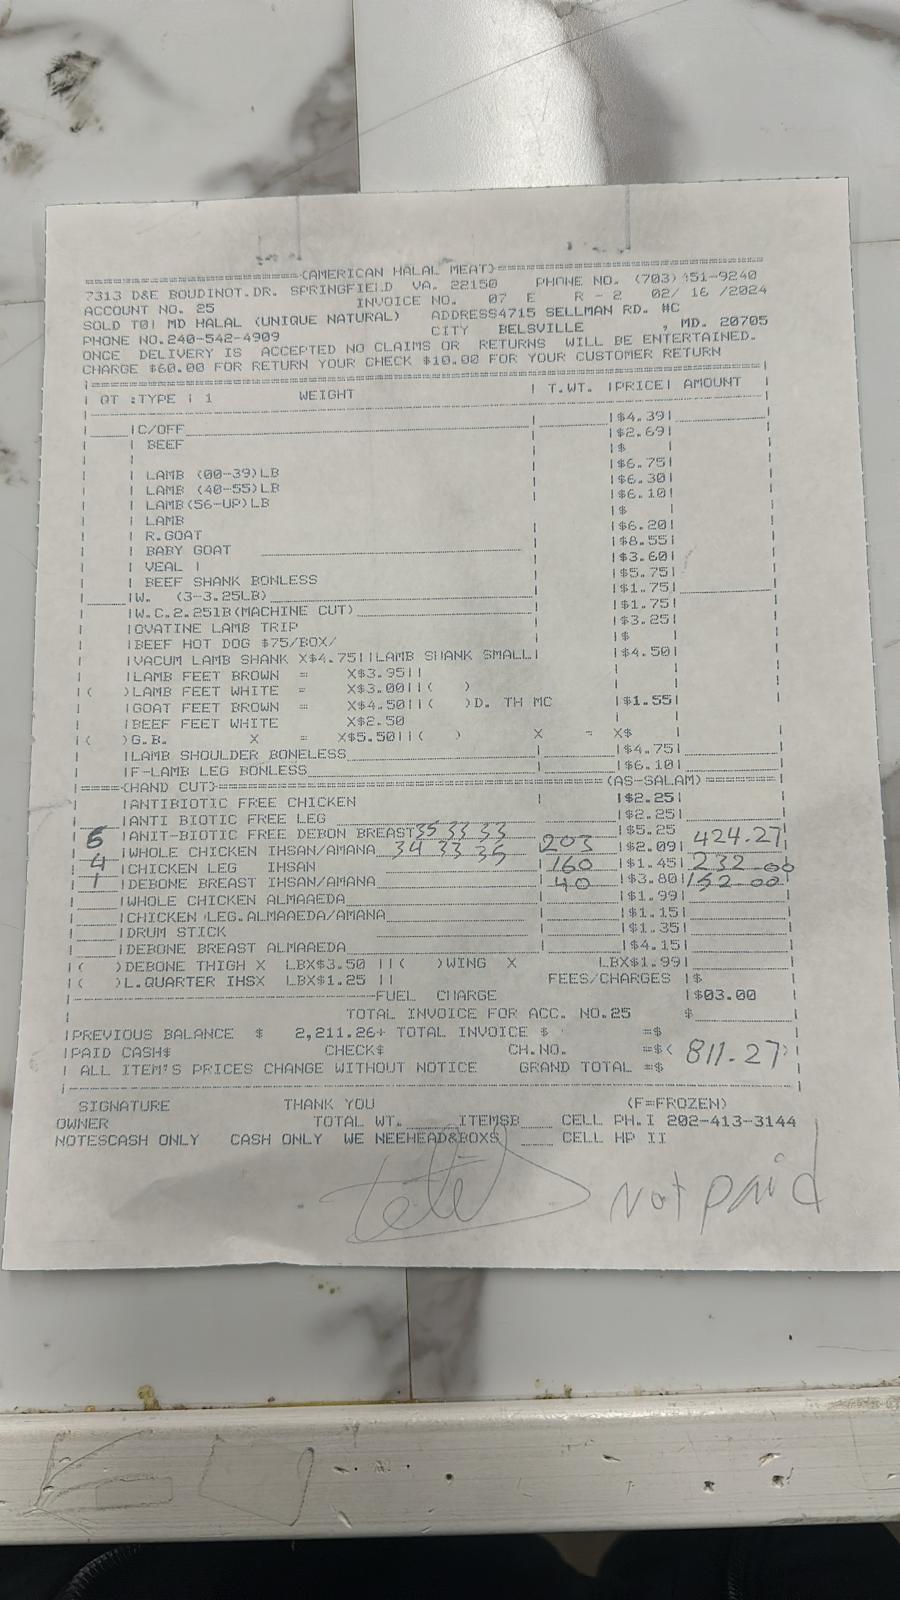 (AMERICAN HALAL MEAT)
7313 D&E BOUDINOT.DR. SPRINGFIELD VA. 22150 PHONE NO. (703) 451-9240
ACCOUNT NO. 25 INVOICE NO. 07 E R - 2 02/ 16 /2024
SOLD TO! MD HALAL (UNIQUE NATURAL) ADDRESS4715 SELLMAN RD. #C
PHONE NO.240-542-4909 CITY BELSVILLE , MD. 20705
ONCE DELIVERY IS ACCEPTED NO CLAIMS OR RETURNS WILL BE ENTERTAINED.
CHARGE $60.00 FOR RETURN YOUR CHECK $10.00 FOR YOUR CUSTOMER RETURN
| QT :TYPE | 1 WEIGHT | T.WT. |PRICE| AMOUNT
|C/OFF |$4.39|
| BEEF |$2.69|
| |$ |
| LAMB (00-39)LB |$6.75|
| LAMB (40-55)LB |$6.30|
| LAMB(56-UP)LB |$6.10|
| LAMB |$ |
| R.GOAT |$6.20|
| BABY GOAT |$8.55|
| VEAL | |$3.60|
| BEEF SHANK BONLESS |$5.75|
|W. (3-3.25LB) |$1.75|
|W.C.2.25lB(MACHINE CUT) |$1.75|
|OVATINE LAMB TRIP |$3.25|
|BEEF HOT DOG $75/BOX/ |$ |
|VACUM LAMB SHANK X$4.75||LAMB SHANK SMALL| |$4.50|
|LAMB FEET BROWN = X$3.95||
|( )LAMB FEET WHITE = X$3.00||( )
|GOAT FEET BROWN = X$4.50||( )D. TH MC |$1.55|
|BEEF FEET WHITE X$2.50
|( )G.B. X = X$5.50||( ) X = X$
|LAMB SHOULDER BONELESS |$4.75|
|F-LAMB LEG BONLESS |$6.10|
(HAND CUT) (AS-SALAM)
|ANTIBIOTIC FREE CHICKEN |$2.25|
|ANTI BIOTIC FREE LEG |$2.25|
|ANIT-BIOTIC FREE DEBON BREAST 35 33 33 |$5.25
6 |WHOLE CHICKEN IHSAN/AMANA 34 33 35 203 |$2.09| 424.27
4 |CHICKEN LEG IHSAN 160 |$1.45| 232-00
1 |DEBONE BREAST IHSAN/AMANA 40 |$3.80| 152-00
|WHOLE CHICKEN ALMAAEDA |$1.99|
|CHICKEN LEG.ALMAAEDA/AMANA |$1.15|
|DRUM STICK |$1.35|
|DEBONE BREAST ALMAAEDA |$4.15|
|( )DEBONE THIGH X LBX$3.50 ||( )WING X LBX$1.99|
|( )L.QUARTER IHSX LBX$1.25 || FEES/CHARGES |$
FUEL CHARGE |$03.00
TOTAL INVOICE FOR ACC. NO.25 $
|PREVIOUS BALANCE $ 2,211.26+ TOTAL INVOICE $ =$
|PAID CASH$ CHECK$ CH.NO. =$< 811.27 >
| ALL ITEM'S PRICES CHANGE WITHOUT NOTICE GRAND TOTAL =$
SIGNATURE THANK YOU (F=FROZEN)
OWNER TOTAL WT. ITEMSB CELL PH.I 202-413-3144
NOTESCASH ONLY CASH ONLY WE NEEHEAD&BOXS CELL HP II
Not paid